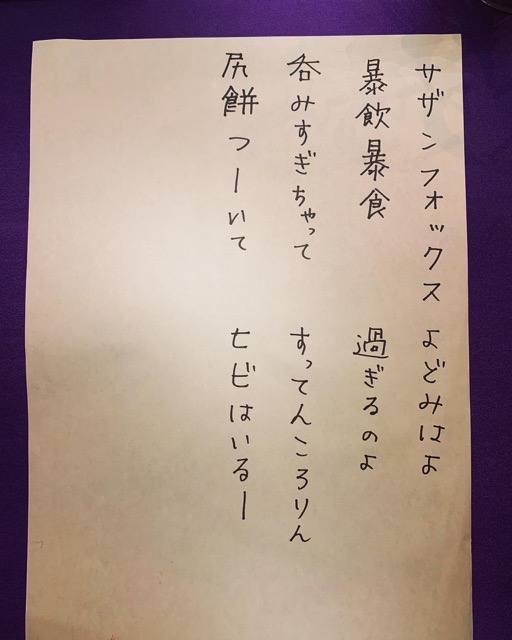 サザンフォックス よどみはよ
暴飲暴食 過ぎるのよ
呑みすぎちゃって すってんころりん
尻餅つーいて ヒビはいるー